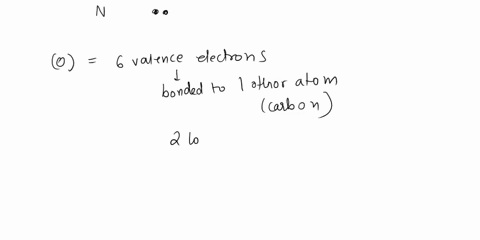 N ••
(O) = 6 valence electrons
↓
bonded to 1 othor atom
(carbon)
2 lo